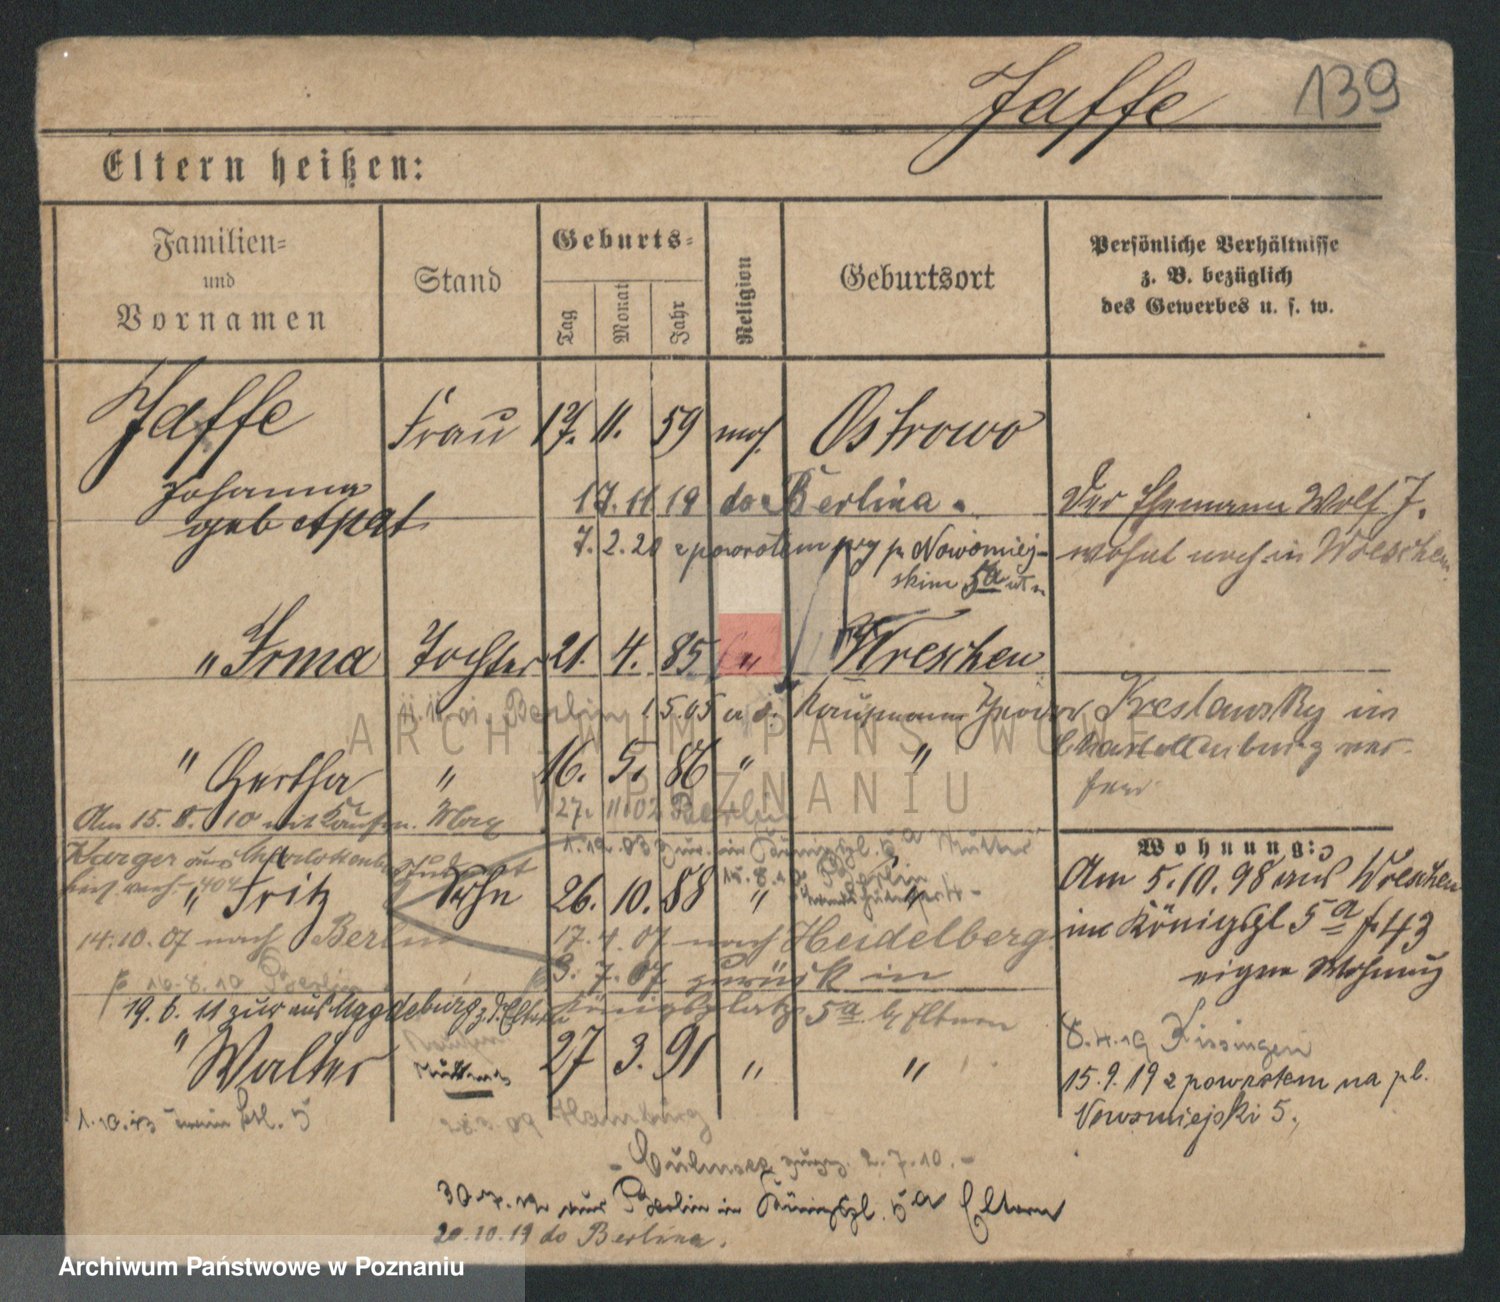 Jaffe 139
Eltern heißen:
Familien=
und
Vornamen
Stand
Geburts=
Tag
Monat
Jahr
Religion
Geburtsort
Persönliche Verhältnisse
z. B. bezüglich
des Gewerbes u. s. w.
Jaffe Frau 17. 11. 59 mos. Ostrowo
Johanna
geb Apat
17.11 19 do Berlina.
Der Ehemann Wolf J.
wohnt noch in Wreschen
7.2.20 z powrotem Nowomiej-
skim 5a
" Irma Tochter 21. 4. 85 " Wreschen
11.11.01. Berlin 1.5.05 Kaufmann in
Charlottenburg ver-
" Gertha " 16. 5. 86 " "
27. 11.02 Berlin
Am 15.8.10 mit Kaufm. Max
Karger aus Charlottenbg
1.12.03 zur. in Königspl. 5a Mutter
Student
15.8. Berlin
" Fritz Sohn 26. 10. 88 " "
14.10.07 nach Berlin
17.4.07 nach Heidelberg
3.7.07 zurück in
Königsplatz 5a b/ Eltern
16.8.10 Berlin
19.6.11 zur aus Magdeburg z. d. Eltern
" Walter 27 3. 91 " "
Wohnung:
Am 5.10.98 aus Wreschen
im Königspl 5a f. 43
eigne Wohnung
8.4.19 Kissingen
15.9.19 z powrotem na pl.
Nowomiejski 5.
1.10.13
28.3.09 Hamburg
- Culmsee zugez. 2.7.10. -
aus Berlin in Königspl. 5a Eltern
20.10.19 do Berlina.
ARCHIWUM PAŃSTWOWE
W POZNANIU
Archiwum Państwowe w Poznaniu